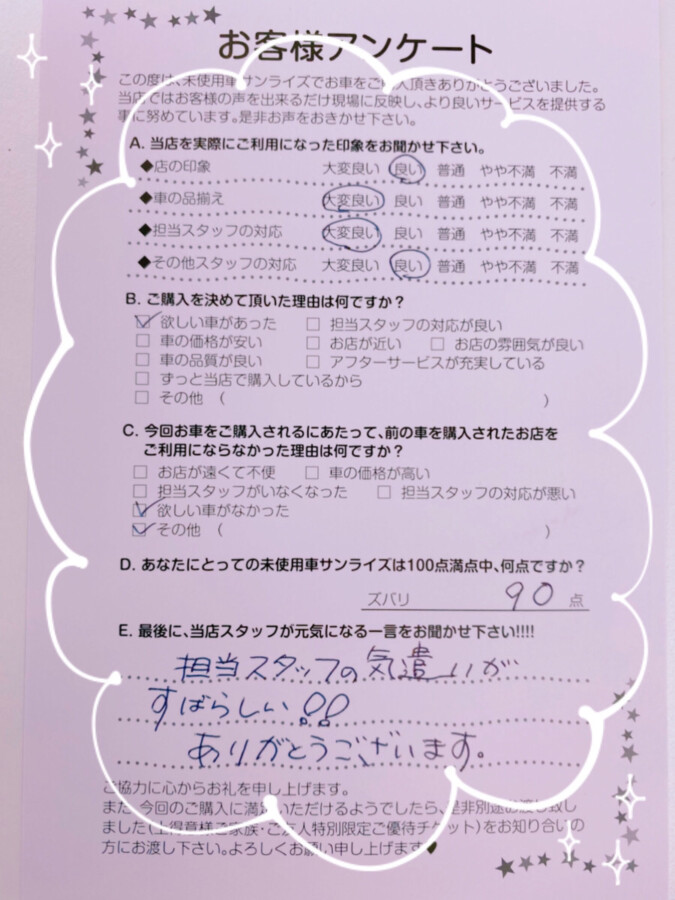 お客様アンケート
この度は、未使用車サンライズでお車をご購入頂きありがとうございました。
当店ではお客様の声を出来るだけ現場に反映し、より良いサービスを提供する
事に努めています。是非お声をおきかせ下さい。
A. 当店を実際にご利用になった印象をお聞かせ下さい。
◆店の印象 大変良い 良い 普通 やや不満 不満
◆車の品揃え 大変良い 良い 普通 やや不満 不満
◆担当スタッフの対応 大変良い 良い 普通 やや不満 不満
◆その他スタッフの対応 大変良い 良い 普通 やや不満 不満
B. ご購入を決めて頂いた理由は何ですか？
☑ 欲しい車があった □ 担当スタッフの対応が良い
□ 車の価格が安い □ お店が近い □ お店の雰囲気が良い
□ 車の品質が良い □ アフターサービスが充実している
□ ずっと当店で購入しているから
□ その他（ ）
C. 今回お車をご購入されるにあたって、前の車を購入されたお店を
ご利用にならなかった理由は何ですか？
□ お店が遠くて不便 □ 車の価格が高い
□ 担当スタッフがいなくなった □ 担当スタッフの対応が悪い
☑ 欲しい車がなかった
☑ その他（ ）
D. あなたにとっての未使用車サンライズは100点満点中、何点ですか？
ズバリ 90 点
E. 最後に、当店スタッフが元気になる一言をお聞かせ下さい!!!!
担当スタッフの気遣いが
すばらしい!!
ありがとうございます。
ご協力に心からお礼を申し上げます。
また、今回のご購入に満足いただけるようでしたら、是非別途お渡し致し
ました（上得意様ご家族・ご友人特別限定ご優待チケット）をお知り合いの
方にお渡し下さい。よろしくお願い申し上げます♥